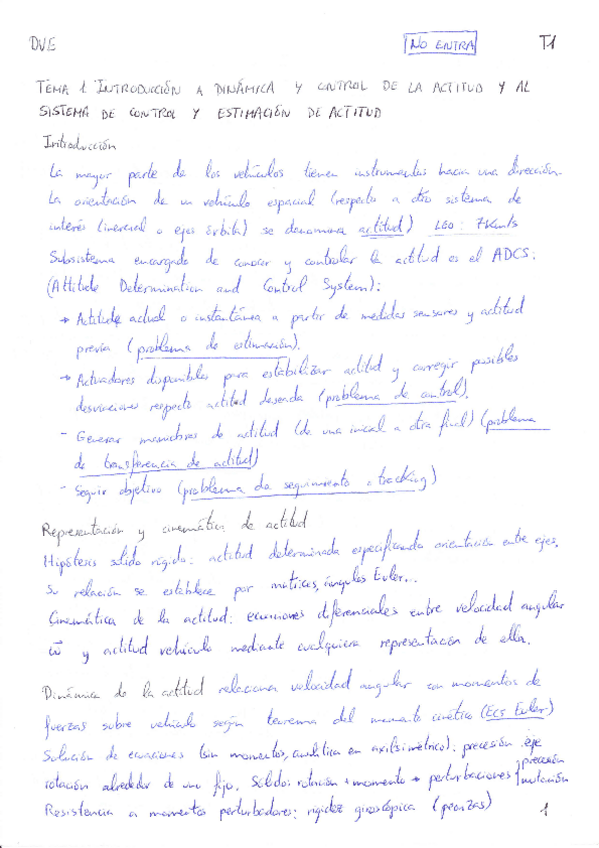 DVE NO ENTRA T1
TEMA 1 INTRODUCCIÓN A DINÁMICA Y CONTROL DE LA ACTITUD Y AL
SISTEMA DE CONTROL Y ESTIMACIÓN DE ACTITUD
Introducción
La mayor parte de los vehículos tienen instrumentos hacia una dirección.
La orientación de un vehículo espacial (respecto a otro sistema de
interés (inercial o ejes órbita) se denomina actitud) LEO: 7km/s
Subsistema encargado de conocer y controlar la actitud es el ADCS:
(Attitude Determination and Control System):
→ Actitud actual o instantánea a partir de medidas sensores y actitud
previa (problema de estimación).
→ Actuadores disponibles para estabilizar actitud y corregir posibles
desviaciones respecto actitud deseada (problema de control).
- Generar maniobras de actitud (de una inicial a otra final) (problema
de transferencia de actitud)
- Seguir objetivo (problema de seguimiento o tracking)
Representación y cinemática de actitud
Hipótesis sólido rígido: actitud determinada especificando orientación entre ejes.
Su relación se establece por matrices, ángulos Euler...
Cinemática de la actitud: ecuaciones diferenciales entre velocidad angular
ω⃗ y actitud vehículo mediante cualquiera representación de ella.
Dinámica de la actitud relaciona velocidad angular con momentos de
fuerzas sobre vehículo según teorema del momento cinético (ECS Euler)
Solución de ecuaciones (sin momentos, analítica en axilsimétrico): precesión eje
rotación alrededor de uno fijo. Sólido: rotación + momento → perturbaciones { precesión
nutación
Resistencia a momentos perturbadores: rigidez giroscópica (peonzas) 1